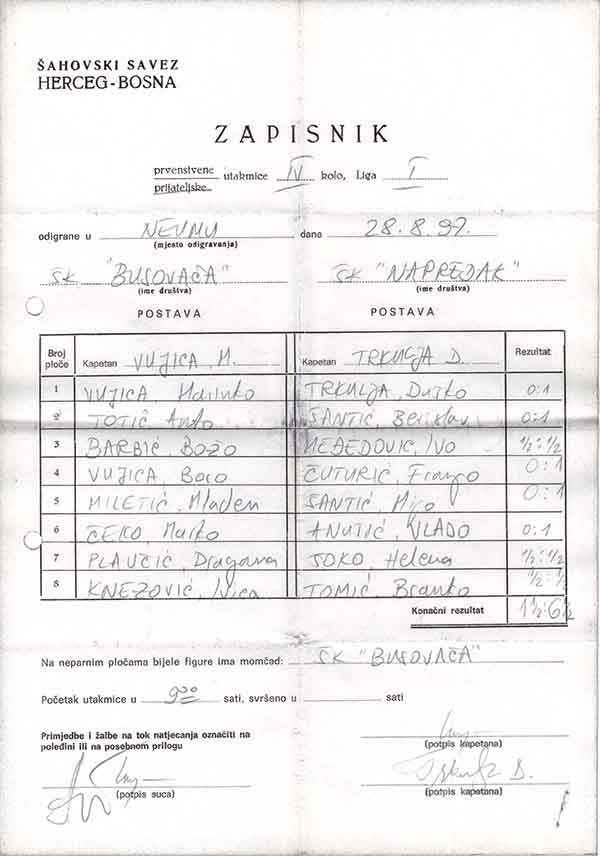 ŠAHOVSKI SAVEZ
HERCEG-BOSNA
ZAPISNIK
prvenstvene
prijateljske
utakmice IV kolo, Liga I
odigrane u NEUMU dana 28.8.97.
(mjesto odigravanja)
ŠK "BUSOVAČA" ŠK "NAPREDAK"
(ime društva) (ime društva)
POSTAVA POSTAVA
Broj ploče Kapetan VUJICA, M. Kapetan TRKULJA D. Rezultat
1 VUJICA, Marinko TRKULJA, Duško 0:1
2 TOTIĆ, Anto ŠANTIĆ, Berislav 0:1
3 BARBIĆ, BOŽO MEĐEDOVIĆ, IVO ½:½
4 VUJICA, Boro ČUTURIĆ, Franjo 0:1
5 MILETIĆ, Mladen ŠANTIĆ, Miro 0:1
6 ČEKO, Marko ANUTIĆ, VLADO 0:1
7 PLAVČIĆ, Dragana SOKO, Helena ½:½
8 KNEZOVIĆ, Ivica TOMIĆ, Branko ½:½
Konačni rezultat 1½:6½
Na neparnim pločama bijele figure ima momčad: ŠK "BUSOVAČA"
Početak utakmice u 9⁰⁰ sati, svršeno u sati
Primjedbe i žalbe na tok natjecanja označiti na
poleđini ili na posebnom prilogu
(potpis kapetana)
Trkulja D.
(potpis suca) (potpis kapetana)